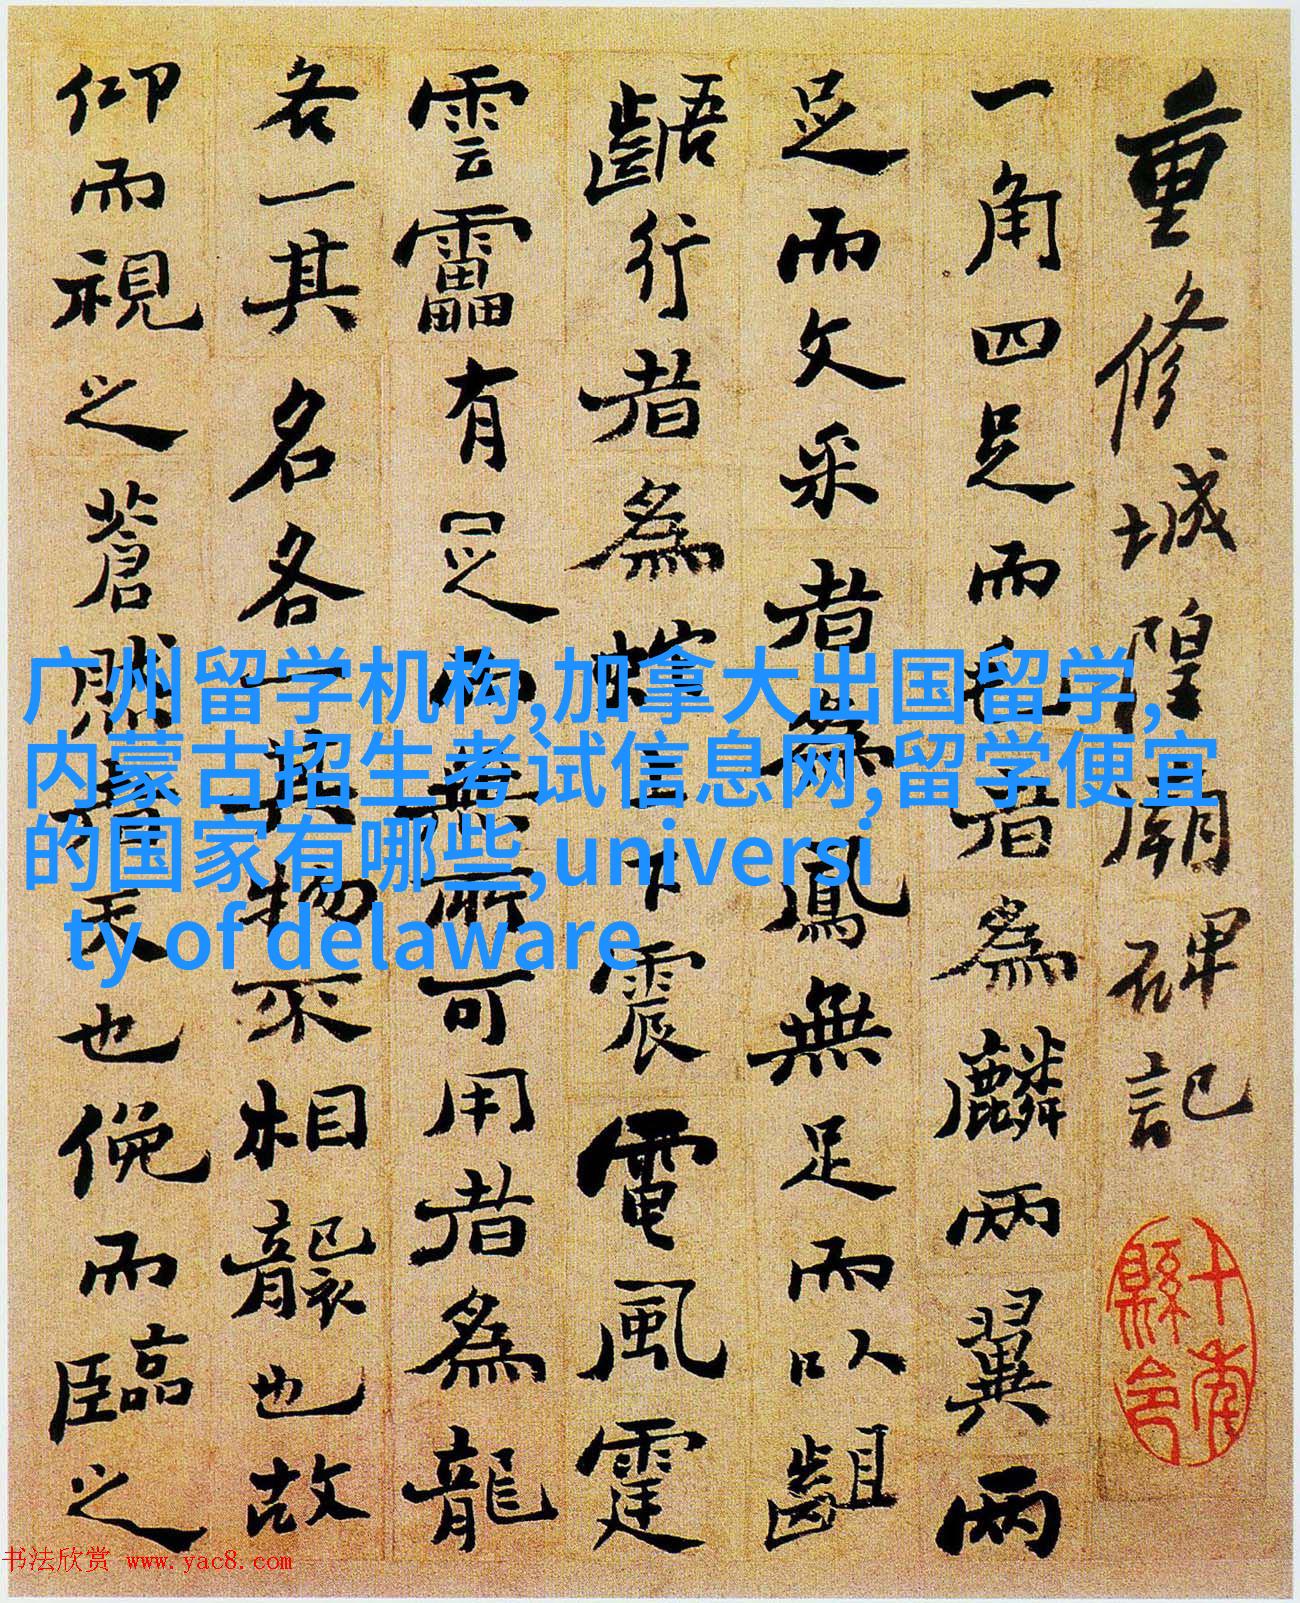 重修城隍廟碑記
一角四足而毛者為麟兩翼兩
足而文采者為鳳無足而以齟
齬行者為蛇上下震電風霆
雲靁有足而無所可用者為龍
各一其名各一其物不相襲也故
仰而視之蒼然者天也俛而臨之
广州留学机构,加拿大出国留学,
内蒙古招生考试信息网,留学便宜
的国家有哪些,universi
ty of delaware
书法欣赏 www.yac8.com